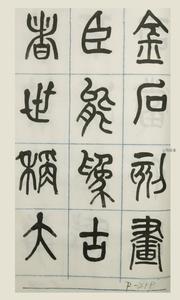 金石刻畫
臣能為古
者世稱大